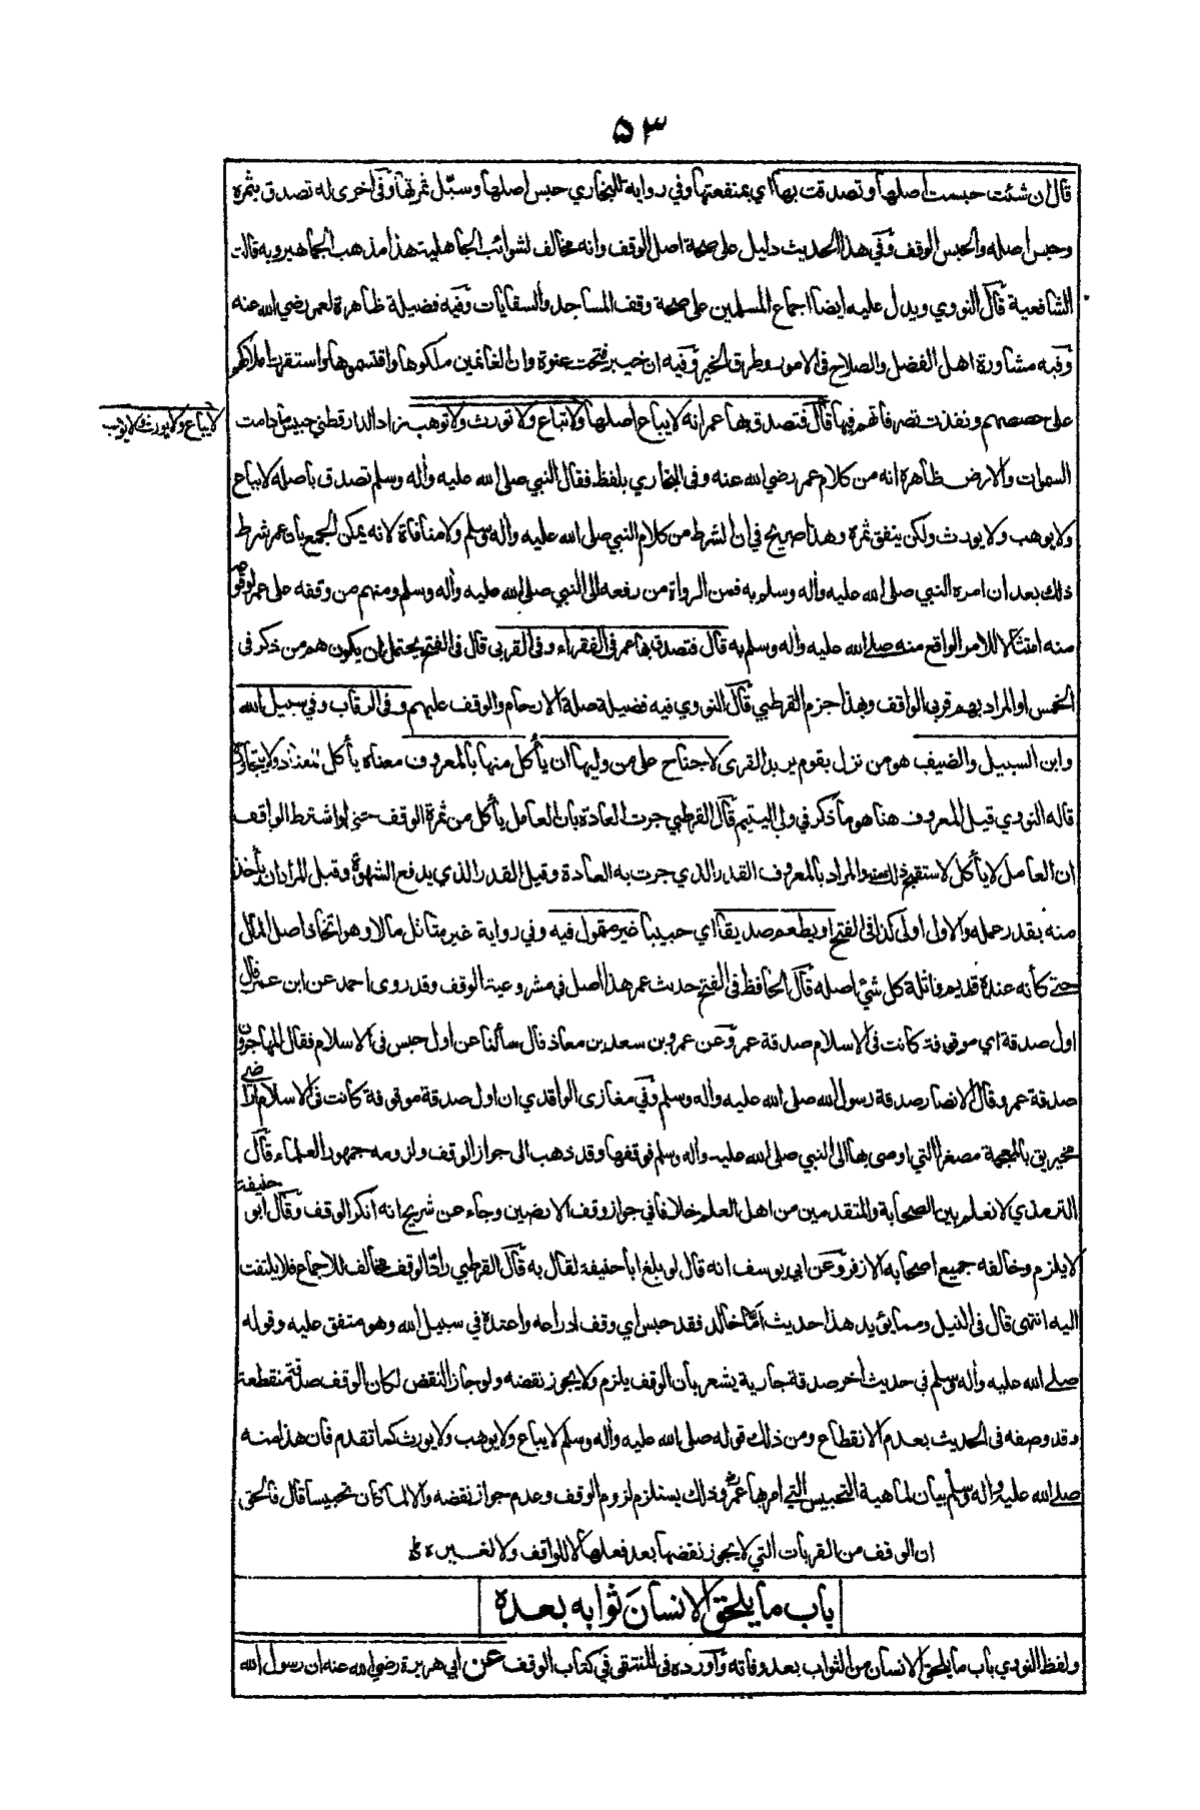 ٥٣
قال ان شئت حبست اصلها وتصدقت بها اي بمنفعتها وفي رواية للبخاري حبس اصلها وسبّل ثمرتها وفي اخرى له تصدق بثمره
وحبس اصله والحبس الوقف وفي هذا الحديث دليل على صحة اصل الوقف وانه مخالف لشوائب الجاهلية هذا مذهب الجماهير وبه قالت
الشافعية قال النووي ويدل عليه ايضا اجماع المسلمين على صحة وقف المساجد والسقايات وفيه فضيلة ظاهرة لعمر رضي الله عنه
وفيه مشاورة اهل الفضل والصلاح فى الامور وطرق الخير وفيه ان خيبر فتحت عنوة وان الغانمين ملكوها واقتسموها واستقرت املاكهم
على حصصهم ونفذت تصرفاتهم فيها قال فتصدق بها عمر انه لا يباع اصلها ولا تباع ولا تورث ولا توهب زاد الدارقطني حبيس ما دامت
لا يباع ولا يورث ولا يوهب
السموات والارض ظاهره انه من كلام عمر رضي الله عنه وفى البخاري بلفظ فقال النبي صلى الله عليه وأله وسلم تصدق باصله لا يباع
ولا يوهب ولا يورث ولكن ينفق ثمره وهذا صريح في ان الشرط من كلام النبي صلى الله عليه وأله وسلم ولا منافاة لانه يمكن الجمع بان عمر شرط
ذلك بعد ان امره النبي صلى الله عليه وأله وسلم به فمن الرواة من رفعه الى النبي صلى الله عليه وأله وسلم ومنهم من وقفه على عمر لوقوعه
منه امتثالا للامر الواقع منه صلى الله عليه وأله وسلم به قال فتصدق بها عمر فى الفقراء وفى القربى قال فى الفتح يحتمل ان يكون هم من ذكر فى
الخمس او المراد بهم قربى الواقف وبهذا جزم القرطبي قال النووي فيه فضيلة صلة الارحام والوقف عليهم وفى الرقاب وفي سبيل الله
وابن السبيل والضيف هو من نزل بقوم يريد القرى لا جناح على من وليها ان يأكل منها بالمعروف معناه يأكل المعتاد ولا يتجاوزه
قاله النووي قيل المعروف هنا هو ما ذكر في ولي اليتيم قال القرطبي جرت العادة بان العامل يأكل من ثمرة الوقف حتى لو اشترط الواقف
ان العامل لا يأكل لاستقبح ذلك منه والمراد بالمعروف القدر الذي جرت به العادة وقيل القدر الذي يدفع الشهوة وقيل المراد ان يأخذ
منه بقدر عمله والاول اولى كذا فى الفتح او يطعم صديقا اي حبيبا غير متمول فيه وفي رواية غير متاثل مالا وهو اتخاذ اصل المال
حتى كأنه عنده قديم واثلة كل شيء اصله قال الحافظ فى الفتح حديث عمر هذا اصل في مشروعية الوقف وقد روى احمد عن ابن عمر قال
اول صدقة اي موقوفة كانت فى الاسلام صدقة عمر وعن عمرو بن سعد بن معاذ قال سألنا عن اول حبس فى الاسلام فقال المهاجرون
صدقة عمر وقال الانصار صدقة رسول الله صلى الله عليه وأله وسلم وفي مغازى الواقدي ان اول صدقة موقوفة كانت فى الاسلام اراضي
مخيريق بالمعجمة مصغرا التي اوصى بها الى النبي صلى الله عليه وأله وسلم فوقفها وقد ذهب الى جواز الوقف ولزومه جمهور العلماء قال
الترمذي لا نعلم بين الصحابة والمتقدمين من اهل العلم خلافا في جواز وقف الارضين وجاء عن شريح انه انكر الوقف وقال ابو حنيفة
لا يلزم وخالفه جميع اصحابه الا زفر وعن ابي يوسف انه قال لو بلغ ابا حنيفة لقال به قال القرطبي رادّ الوقف مخالف للاجماع فلا يلتفت
اليه انتهى قال فى النيل ومما يؤيد هذا حديث امّا خالد فقد حبس اي وقف ادراعه واعتده في سبيل الله وهو متفق عليه وقوله
صلى الله عليه وأله وسلم في حديث أخر صدقة جارية يشعر بان الوقف يلزم ولا يجوز نقضه ولو جاز النقض لكان الوقف صدقة منقطعة
وقد وصفه فى الحديث بعدم الانقطاع ومن ذلك قوله صلى الله عليه وأله وسلم لا يباع ولا يوهب ولا يورث كما تقدم فان هذا منه
صلى الله عليه وأله وسلم بيان لماهية التحبيس التي امر بها عمر وذلك يستلزم لزوم الوقف وعدم جواز نقضه والا لما كان تحبيسا قال فالحق
ان الوقف من القربات التي لا يجوز نقضها بعد فعلها لا للواقف ولا لغيره
باب ما يلحق الانسان ثوابه بعده
ولفظ النووي باب ما يلحق الانسان من الثواب بعد وفاته وأورده فى المنتقى في كتاب الوقف عن ابي هريرة رضي الله عنه ان رسول الله